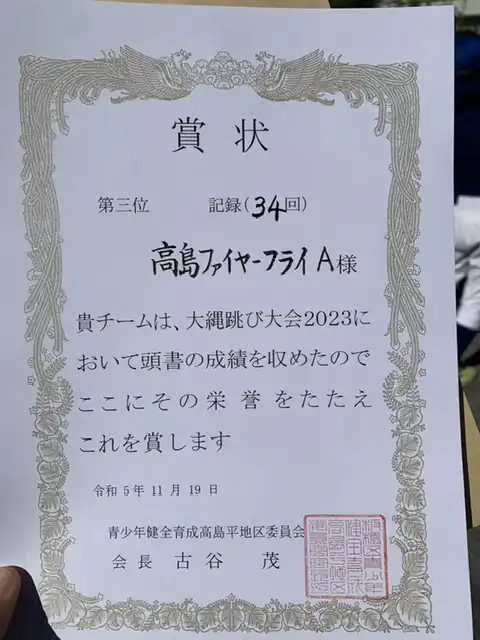 賞状
第三位 記録(34回)
高島ファイヤーフライA様
貴チームは、大縄跳び大会2023に
おいて頭書の成績を収めたので
ここにその栄誉をたたえ
これを賞します
令和5年11月19日
青少年健全育成高島平地区委員会
会長 古谷 茂